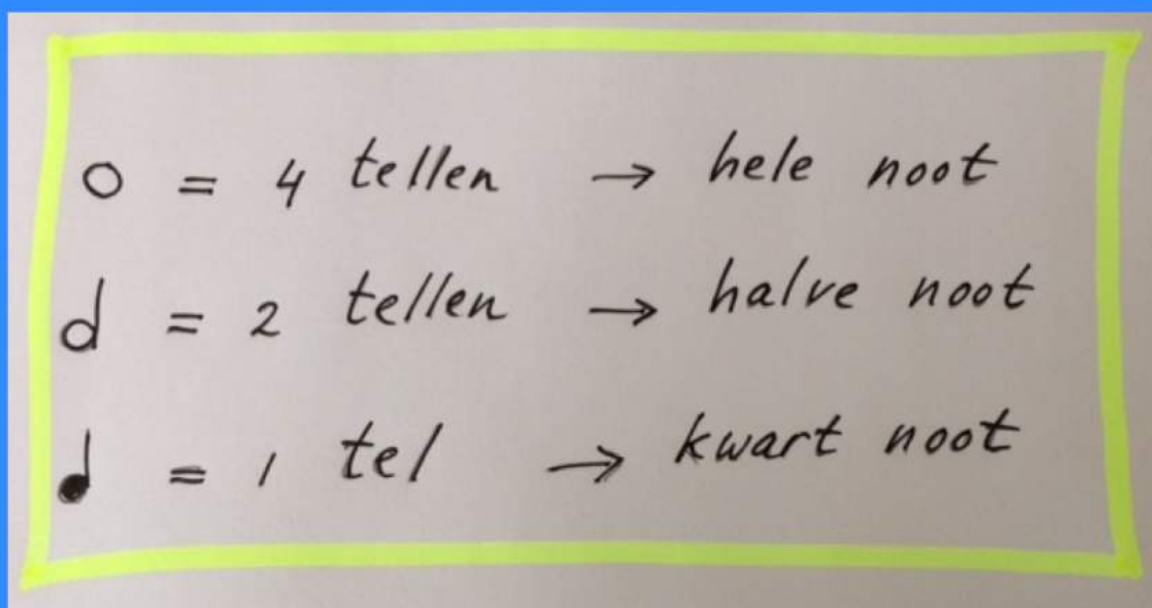 𝅝 = 4 tellen → hele noot
𝅗𝅥 = 2 tellen → halve noot
♩ = 1 tel → kwart noot